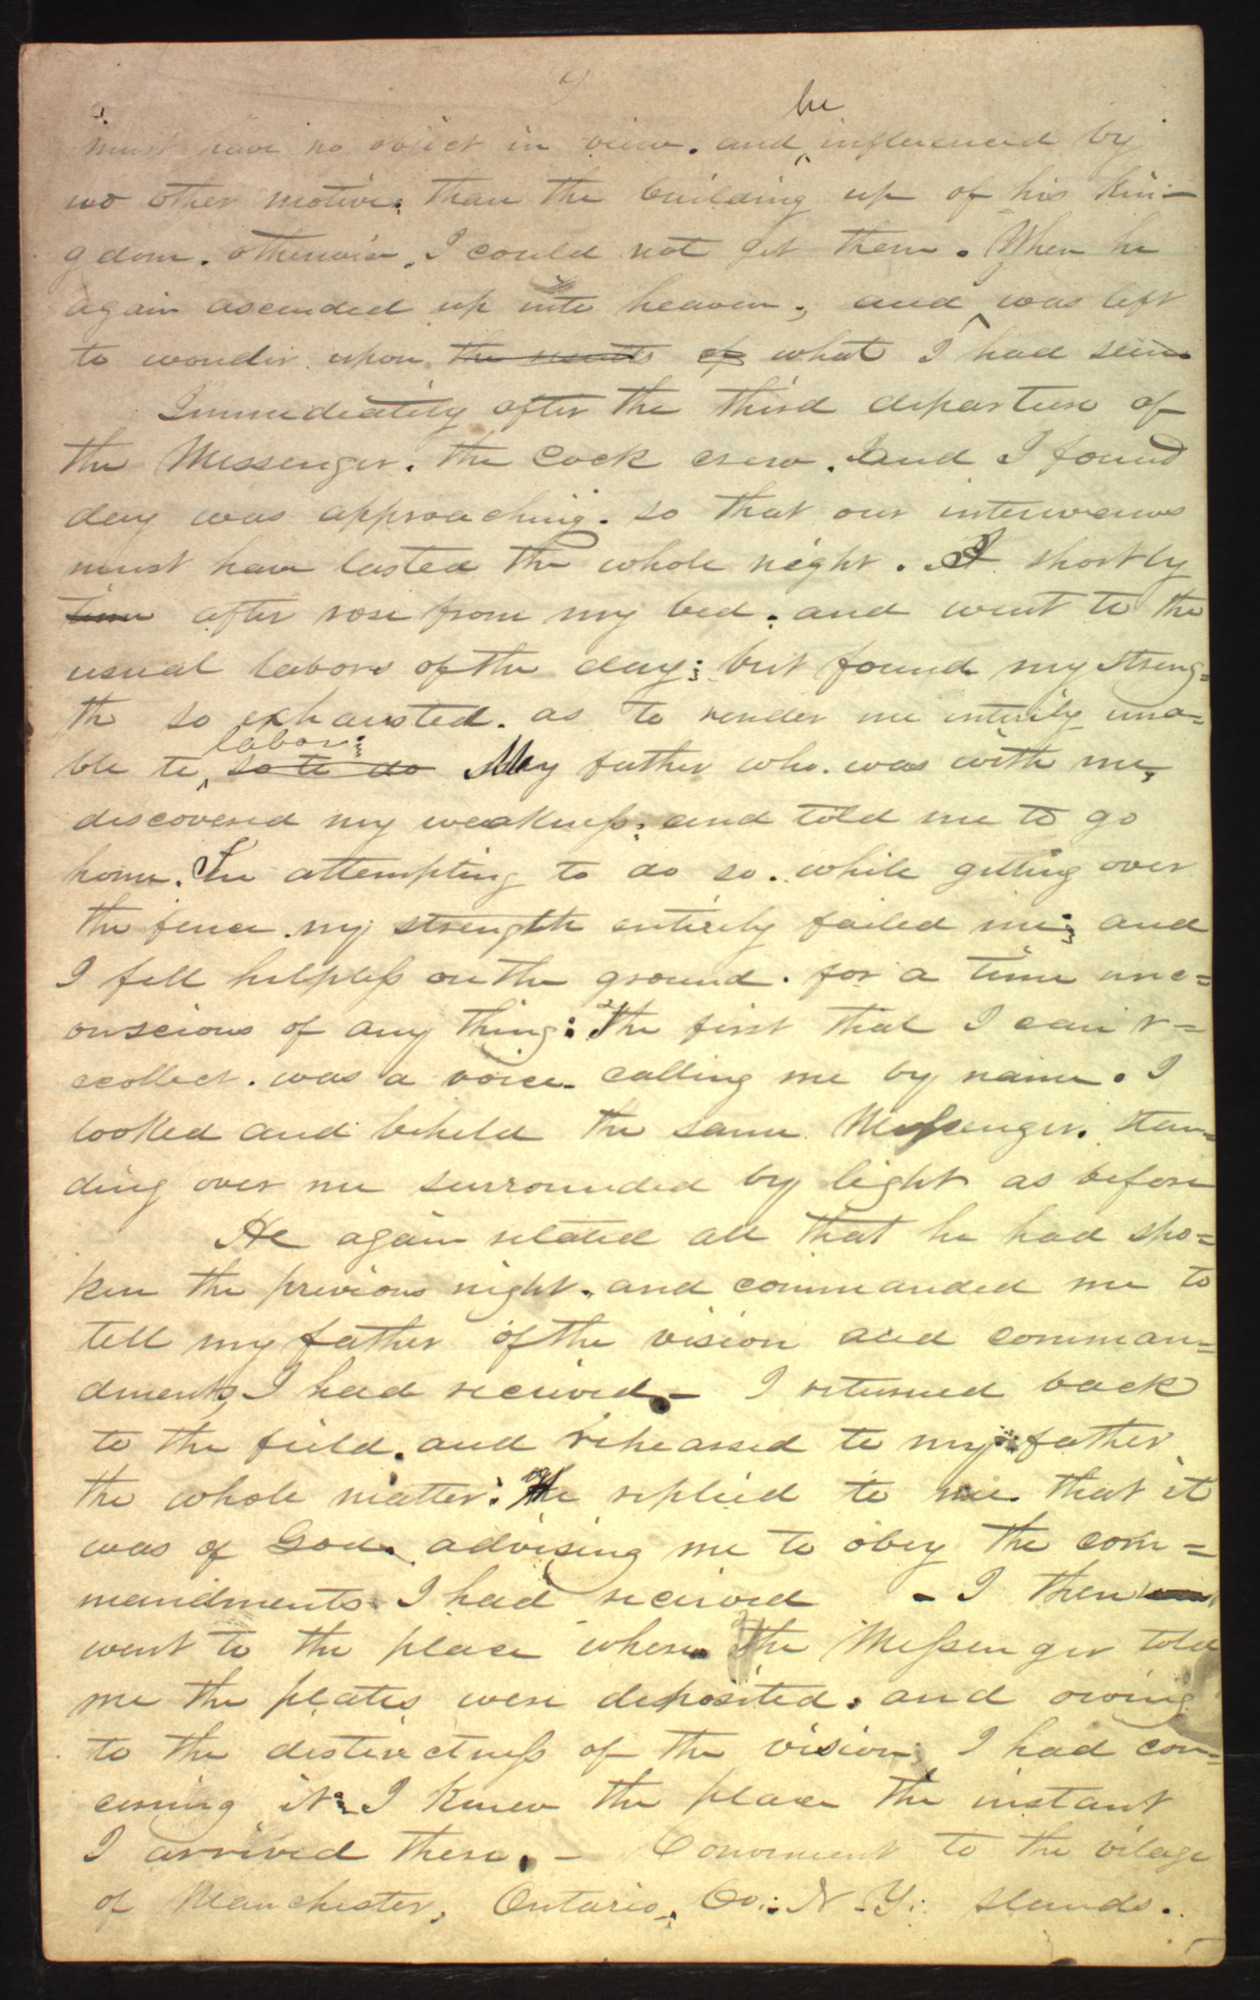 9
must have no object in view. and ^he influenced by
no other motive, than the building up of his kin-
gdom. otherwise, I could not get them. When he
again ascended up into heaven; and ^ was left
to wonder upon the results of what I had seen.
Immediately after the third departure of
the Messenger. the cock crew. and I found
day was approaching. so that our interviews
must have lasted the whole night. I shortly
time after rose from my bed. and went to the
usual labors of the day; but found my streng=
th so exhausted. as to render me entirely una=
ble to ^labor; so to do My father who. was with me,
discovered my weakness. and told me to go
home. In attempting to do so. while getting over
the fence. my strength entirely failed me; and
I fell helpless on the ground. for a time unc=
onscious of any thing: The first that I can r=
ecollect. was a voice. calling me by name. I
looked and beheld the same Messenger. stan=
ding over me surrounded by light as before
He again related all that he had spo=
ken the previous night. and commanded me to
tell my father of the vision and comman=
dments I had received.- I returned back
to the field. and rehearsed to my father
the whole matter. He replied to me. that it
was of God. advising me to obey the com=
mandments I had received - I then
went to the place where the Messenger told
me the plates were deposited. and owing
to the distinctness of the vision, I had con=
cerning it; I knew the place the instant
I arrived there. - Convenient to the vilage
of Manchester, Ontario, Co.: N.Y: stands.